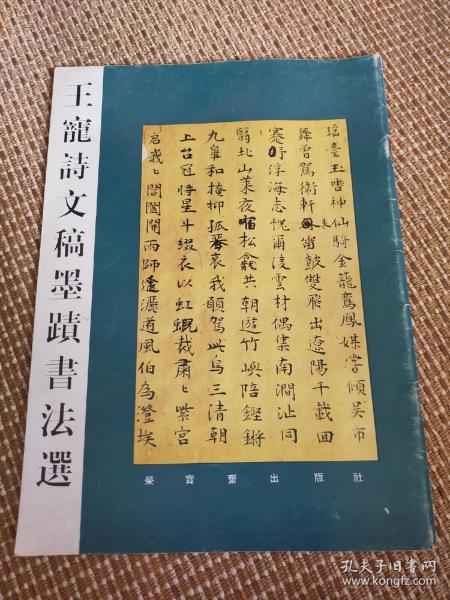 王寵詩文稿墨蹟書法選
瑤臺玉沓神仙騎金籠鴛鳳媒嘗傾吳市
舞曾駕衛軒雷鼓雙飛出遼陽千載回
蹇浮海志愧爾凌雲材偶集南澗沚同
翳北山萊夜宿松龕共朝遊竹嶼陪鏗鏘
九皋和棲抑孤衷我願駕此鳥三清朝
上台冠將星斗綴衣以虹蜺裁肅〻紫宮
啟峩〻閶闔開雨師逢灑道風伯為澄埃
榮寶齋出版社
孔夫子旧书网
www.kongfz.com